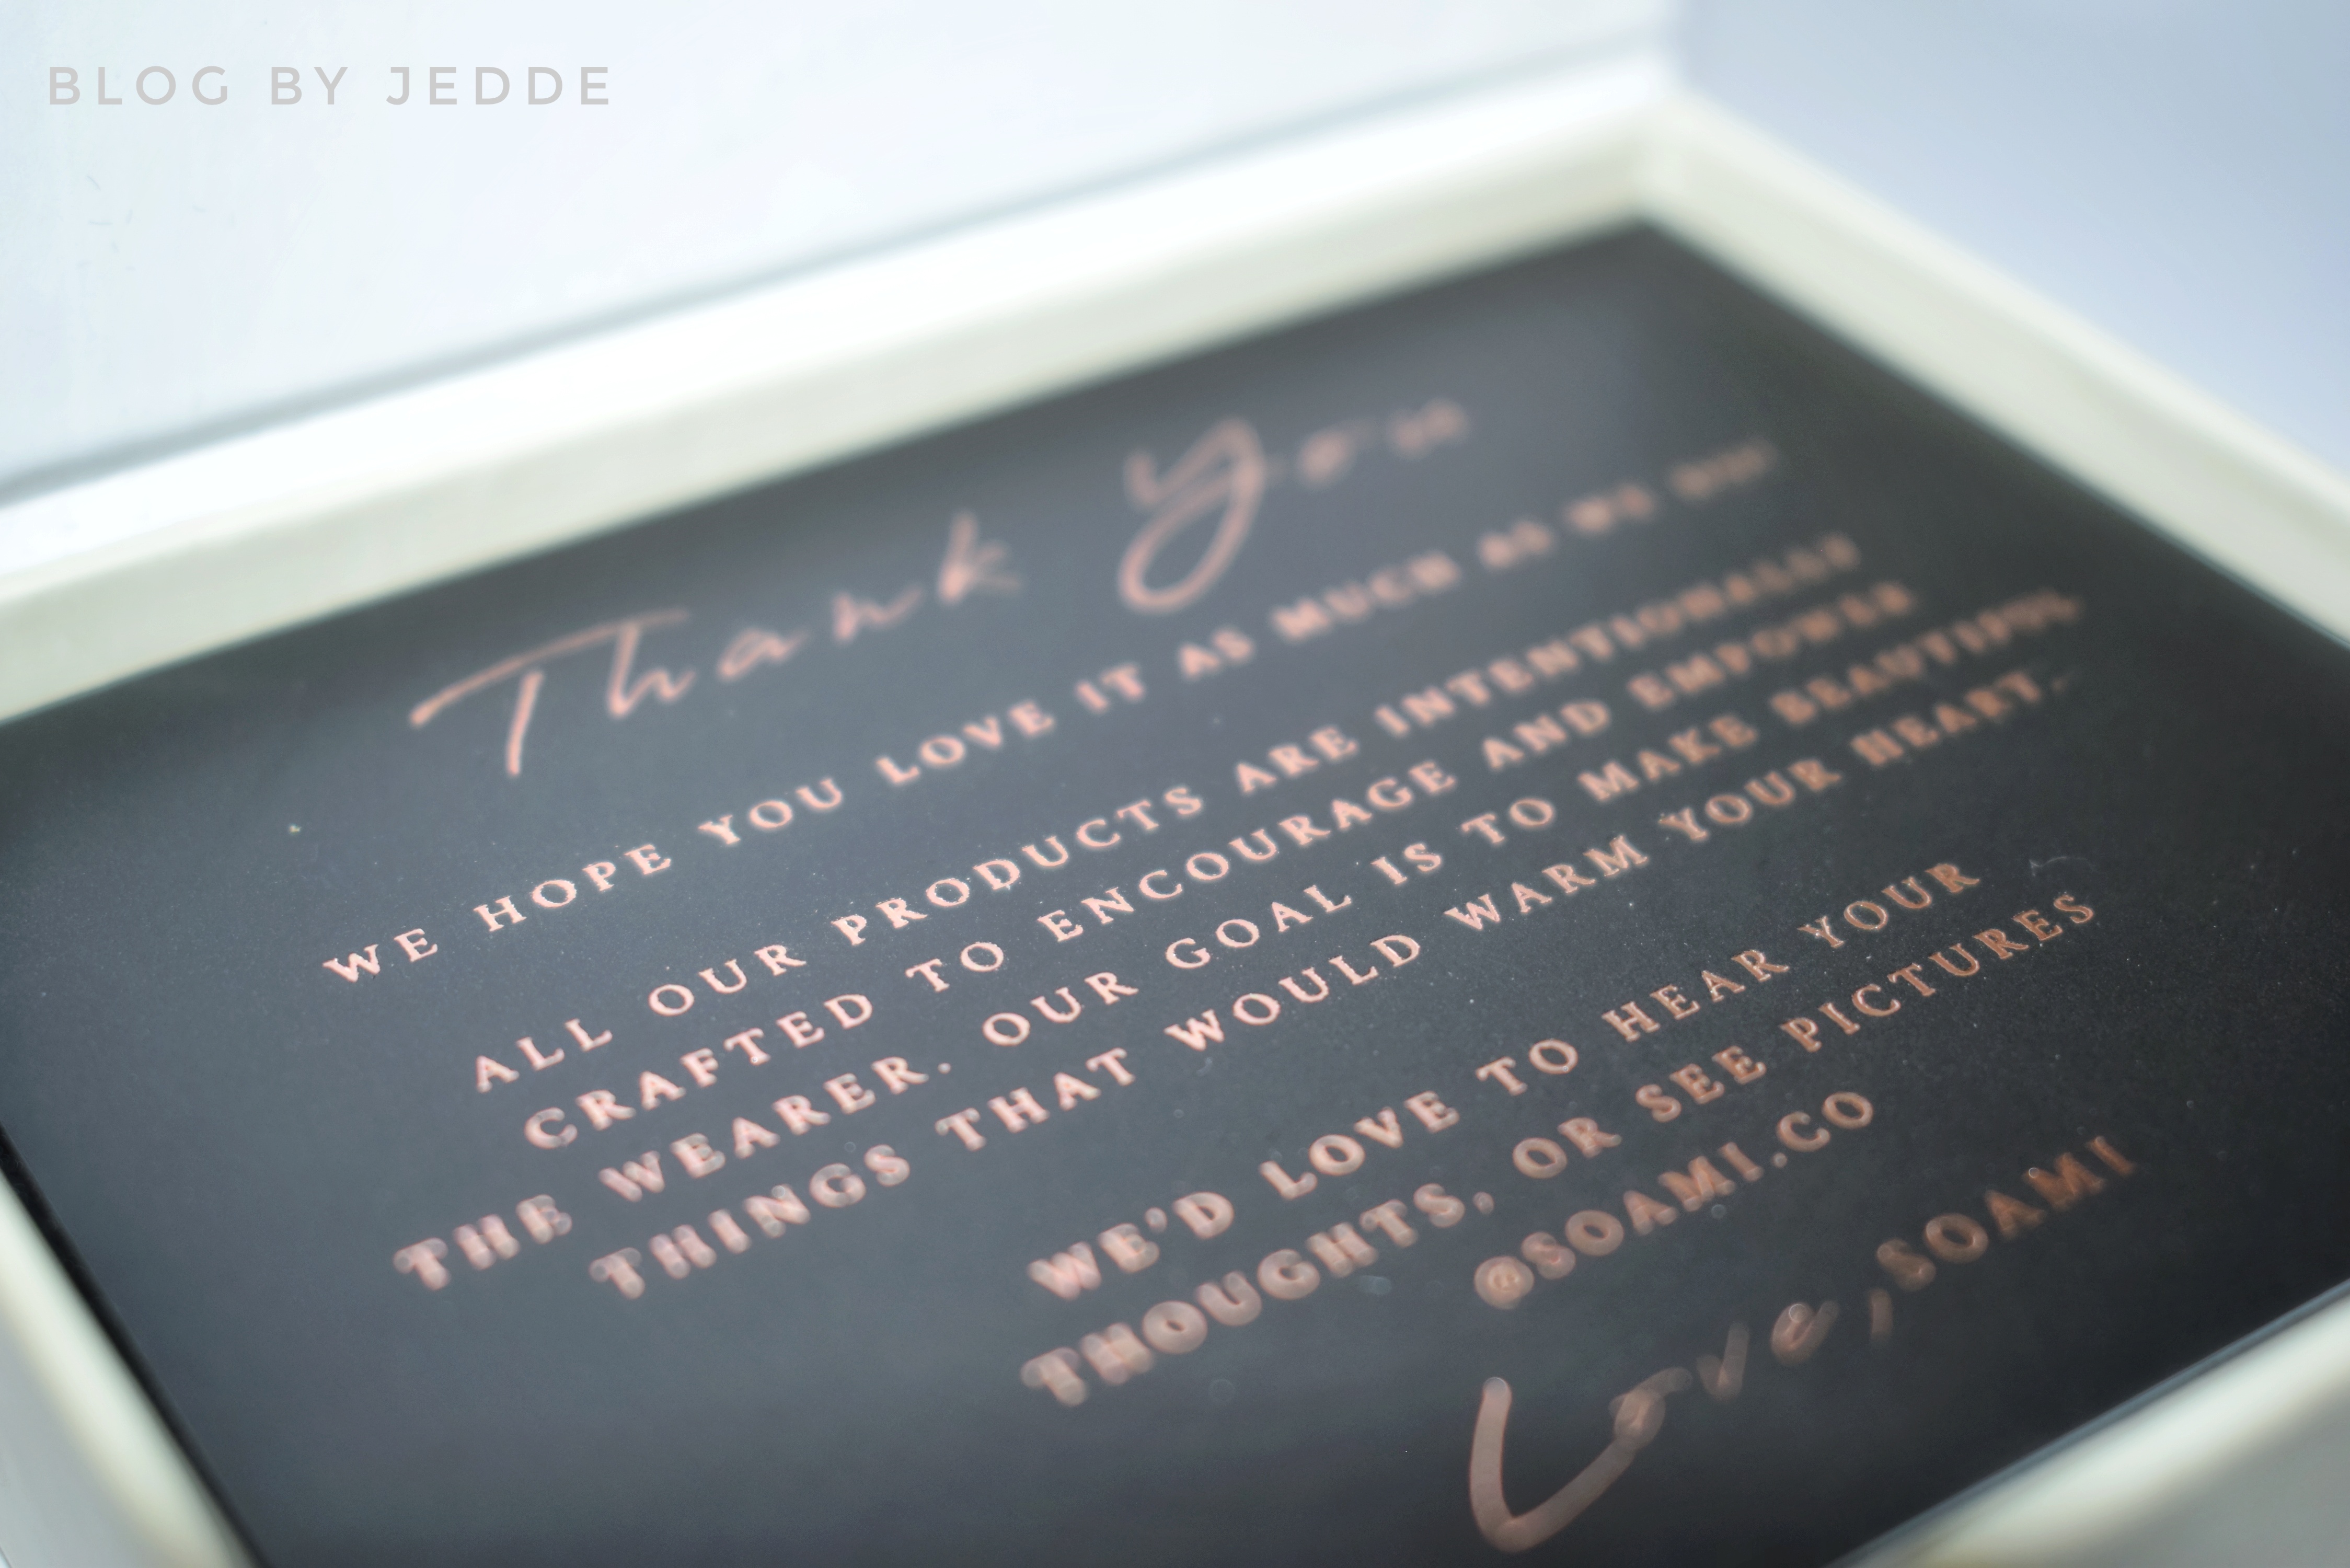 BLOG BY JEDDE
Thank You
WE HOPE YOU LOVE IT AS MUCH AS WE DO!
ALL OUR PRODUCTS ARE INTENTIONALLY
CRAFTED TO ENCOURAGE AND EMPOWER
THE WEARER. OUR GOAL IS TO MAKE BEAUTIFUL
THINGS THAT WOULD WARM YOUR HEART.
WE'D LOVE TO HEAR YOUR
THOUGHTS, OR SEE PICTURES
@SOAMI.CO
Love, SOAMI